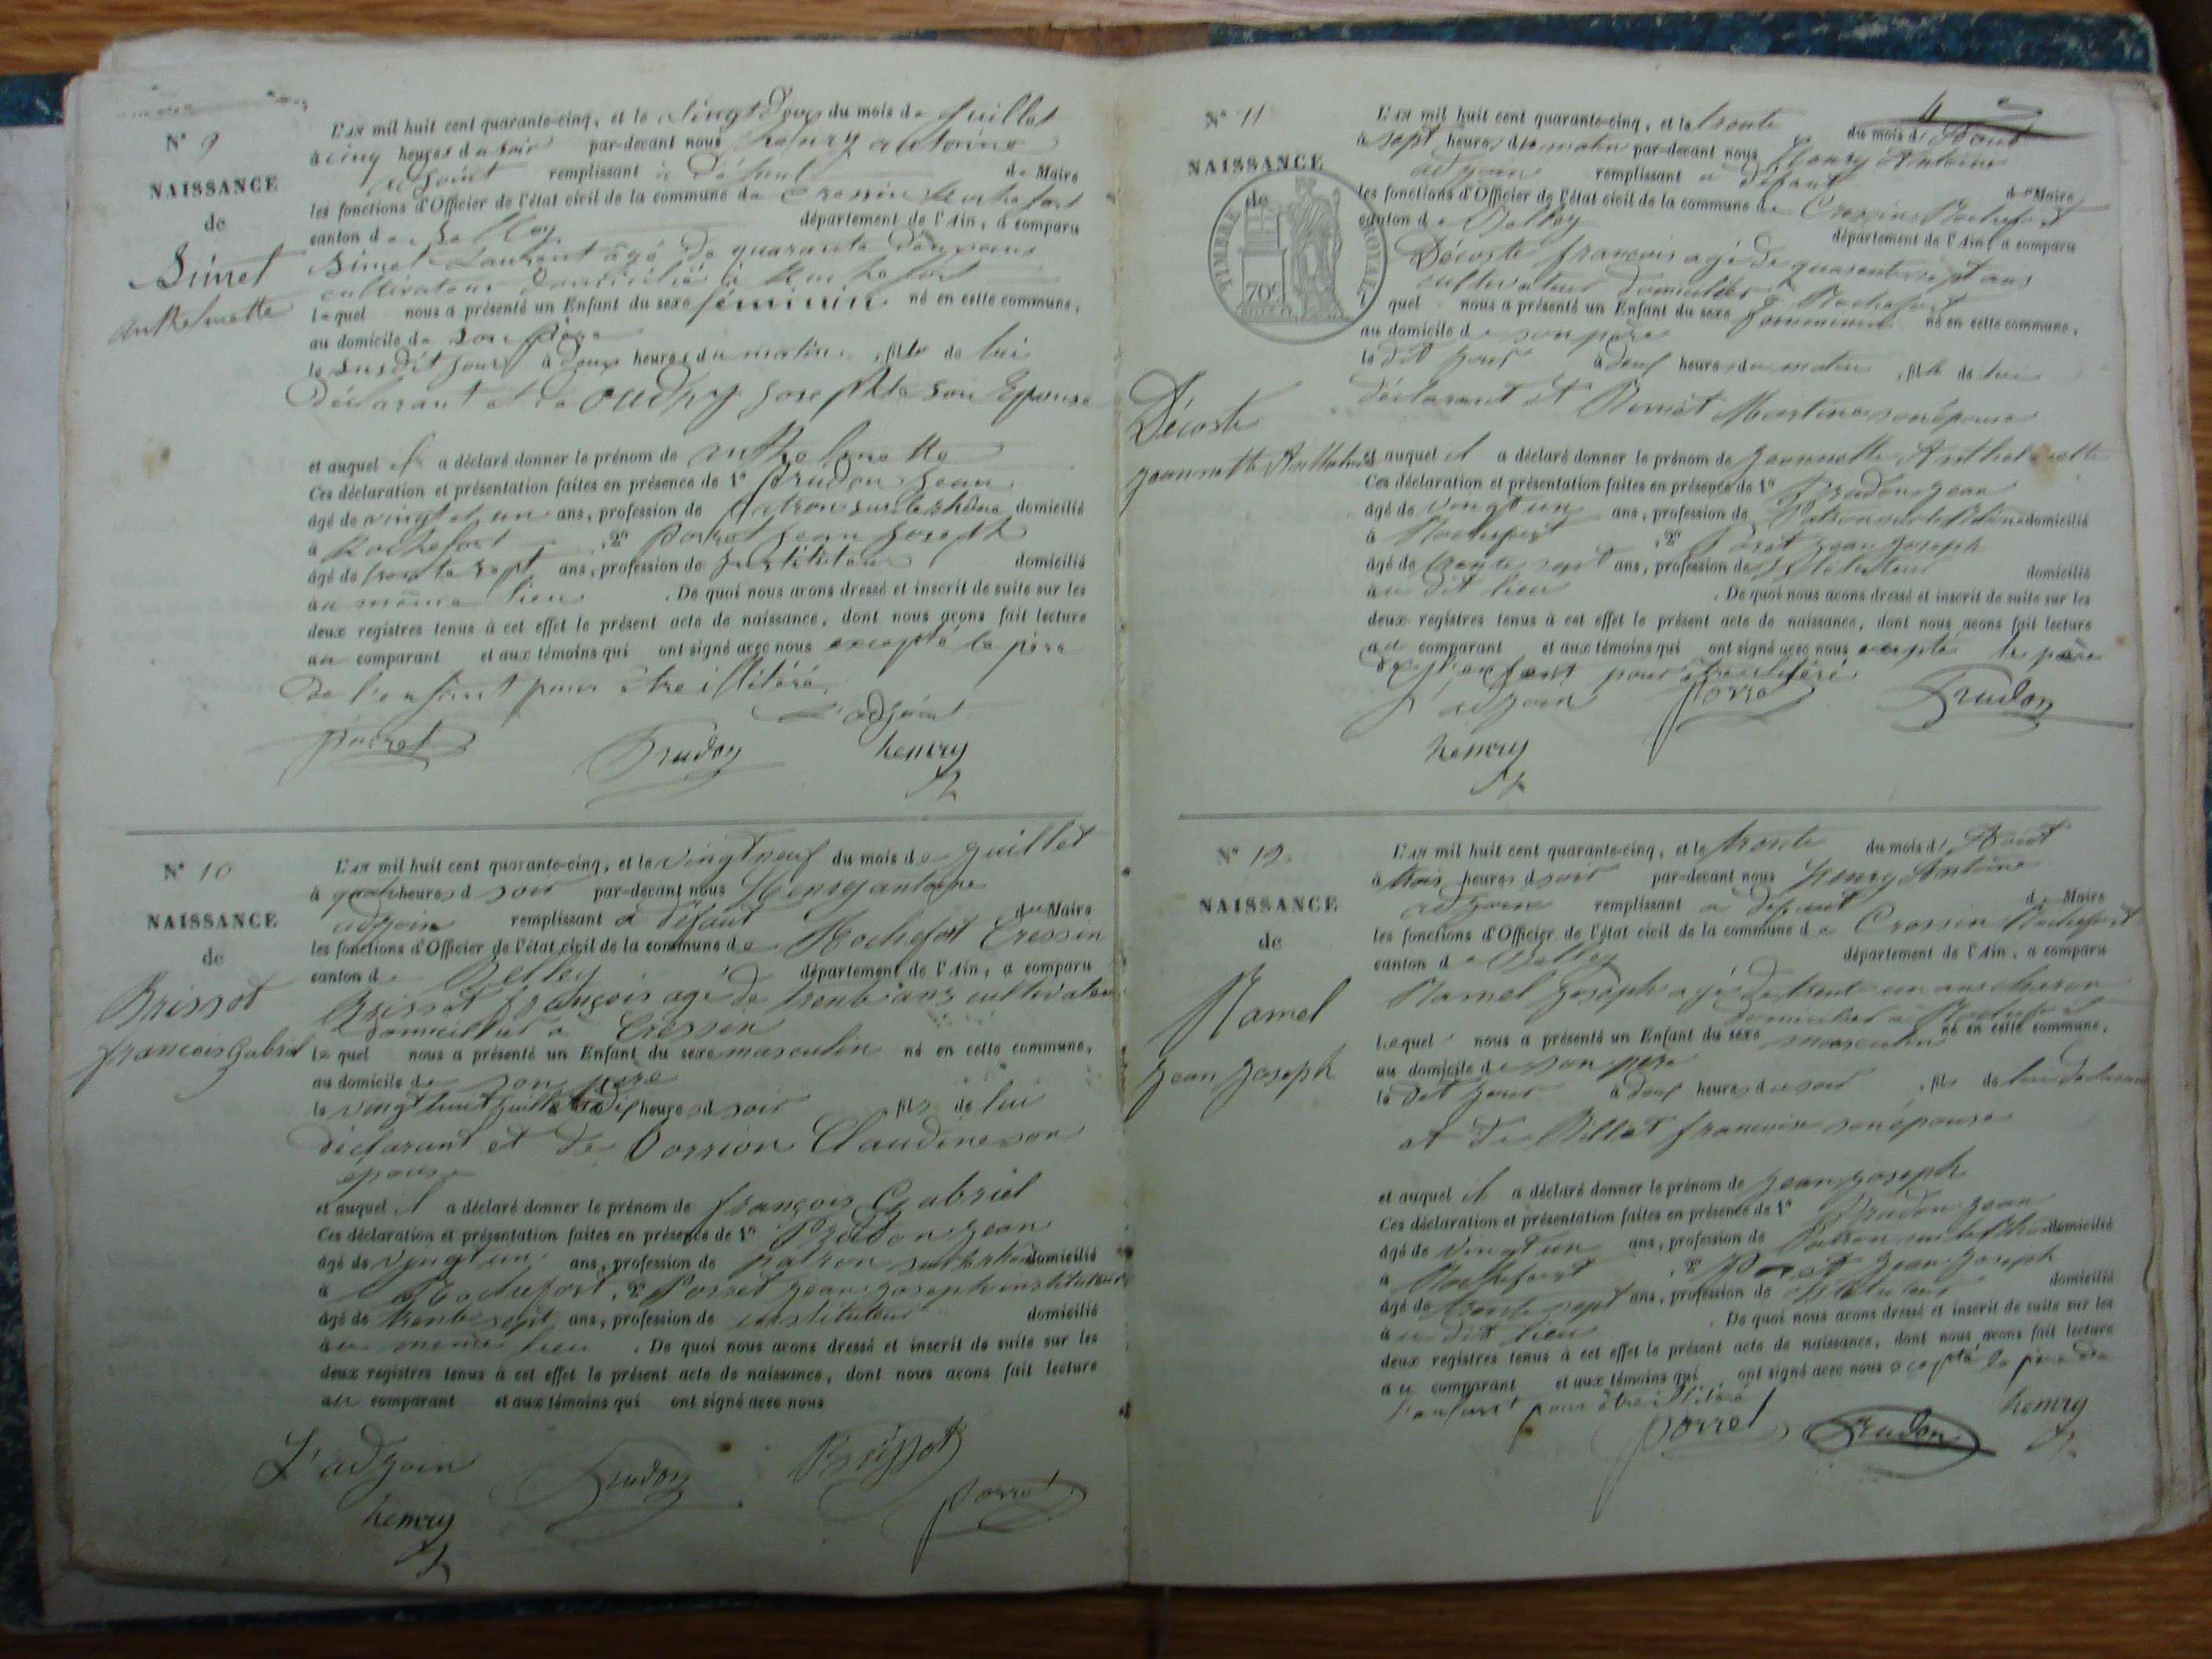 N° 9
NAISSANCE
de
Simet
Anthelmette
L'AN mil huit cent quarante-cinq, et le vingt deux du mois de Juillet
à cinq heures du soir par-devant nous henry antoine
adjoint remplissant à défaut de Maire
les fonctions d'Officier de l'état civil de la commune de Cressin Rochefort
canton de Belley département de l'Ain, a comparu
Simet Laurent âgé de quarante deux ans
cultivateur domicilié à Rochefort
lequel nous a présenté un Enfant du sexe féminin né en cette commune,
au domicile de son père
le susdit jour à deux heures du matin, fille de lui
déclarant et de oudry Josephte son Epouse
et auquel il a déclaré donner le prénom de anthelmette
Ces déclaration et présentation faites en présence de 1° prudon Jean
âgé de vingt et un ans, profession de patron sur le rhône domicilié
à Rochefort, 2° Porret Jean Joseph
âgé de trente sept ans, profession de Instituteur domicilié
au même lieu. De quoi nous avons dressé et inscrit de suite sur les
deux registres tenus à cet effet le présent acte de naissance, dont nous avons fait lecture
au comparant et aux témoins qui ont signé avec nous excepté le père
de l'enfant pour être illitéré
L'adjoint
porret Prudon henry
N° 10
NAISSANCE
de
Brissot
francois Gabriel
L'AN mil huit cent quarante-cinq, et le vingt neuf du mois de juillet
à quatre heures d soir par-devant nous Henry antoine
adjoin remplissant a défaut du Maire
les fonctions d'Officier de l'état civil de la commune de Rochefort Cressin
canton de Belley département de l'Ain, a comparu
Brissot françois agé de trente ans cultivateur
domicillié à Cressin
lequel nous a présenté un Enfant du sexe masculin né en cette commune,
au domicile de son père
le vingt huit juillet à dix heures d soir fils de lui
déclarant et de Dorrion Claudine son
épouse
et auquel il a déclaré donner le prénom de françois Gabriel
Ces déclaration et présentation faites en présence de 1° Prudon jean
âgé de vingt un ans, profession de patron sur le rhône domicilié
à Rochefort, 2° Porret jean joseph instituteur
âgé de trente sept ans, profession de instituteur domicilié
au meme lieu. De quoi nous avons dressé et inscrit de suite sur les
deux registres tenus à cet effet le présent acte de naissance, dont nous avons fait lecture
au comparant et aux témoins qui ont signé avec nous
L'adjoin Prudon Brissot
henry porret
4
N° 11
NAISSANCE
de
TIMBRE ROYAL
70c
Décoste
jeannette Anthelmette
L'AN mil huit cent quarante-cinq, et le trente du mois d'Aout
à sept heures du matin par-devant nous Henry Antoine
adjoin remplissant a défaut du Maire
les fonctions d'Officier de l'état civil de la commune de Cressin Rochefort
canton de Belley département de l'Ain, a comparu
Décoste françois agé de quarente sept ans
cultivateur domicilié à Rochefort
quel nous a présenté un Enfant du sexe feminin né en cette commune,
au domicile de son père
le dit jour à deux heures du matin, fille de lui
déclarant et Martine son épouse
et auquel il a déclaré donner le prénom de jeannette Anthelmette
Ces déclaration et présentation faites en présence de 1° Prudon jean
âgé de vingt un ans, profession de Patron sur le Rhône domicilié
à Rochefort, 2° Poret jean joseph
âgé de trente sept ans, profession de instituteur domicilié
au dit lieu. De quoi nous avons dressé et inscrit de suite sur les
deux registres tenus à cet effet le présent acte de naissance, dont nous avons fait lecture
au comparant et aux témoins qui ont signé avec nous excepté le père
de l'enfant pour être illitéré
L'adjoin porret Prudon
henry
N° 12
NAISSANCE
de
Ramel
jean joseph
L'AN mil huit cent quarante-cinq, et le trente du mois d'Aout
à trois heures d soir par-devant nous Henry Antoine
adjoin remplissant a défaut de Maire
les fonctions d'Officier de l'état civil de la commune de Cressin Rochefort
canton de Belley département de l'Ain, a comparu
Ramel joseph agé de trente un ans
domicilié à Rochefort
Lequel nous a présenté un Enfant du sexe masculin né en cette commune,
au domicile de son père
le dit jour à deux heures du soir, fils de lui declarant
et de Billat francoise son épouse
et auquel il a déclaré donner le prénom de jean joseph
Ces déclaration et présentation faites en présence de 1° Prudon jean
âgé de vingt un ans, profession de Patron sur le Rhône domicilié
à Rochefort, 2° Poret jean joseph
âgé de trente sept ans, profession de instituteur domicilié
au dit lieu. De quoi nous avons dressé et inscrit de suite sur les
deux registres tenus à cet effet le présent acte de naissance, dont nous avons fait lecture
au comparant et aux témoins qui ont signé avec nous excepté le père de
l'enfant pour être illitéré henry
porret Prudon